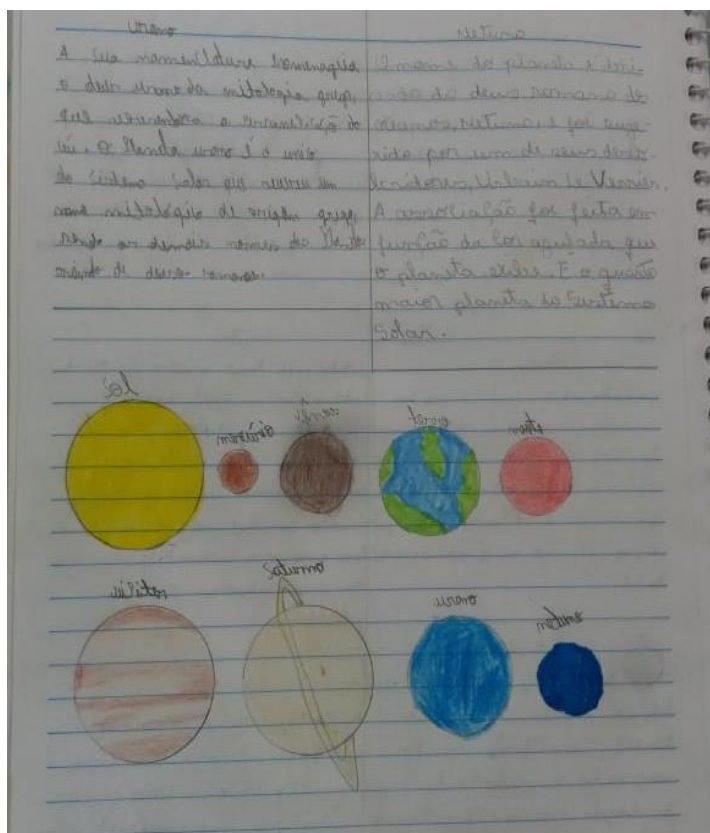 Urano
A sua homenageia
o deus urano da mitologia grega,
que a do
céu. O urano é o unico
do sistema solar que um
nome de origem grega,
sendo os demais nomes dos
de
Netuno
O nome do planeta é deri-
vado do deus romano dos
oceanos, Netuno, e foi suge-
rido por um de seus desco-
bridores, Urbain Le Verrier.
A associação foi feita em
função da cor azulada que
o planeta exibe. É o quarto
maior planeta do Sistema
Solar.
Sol
mercúrio
Vênus
terra
marte
Saturno
urano
netuno